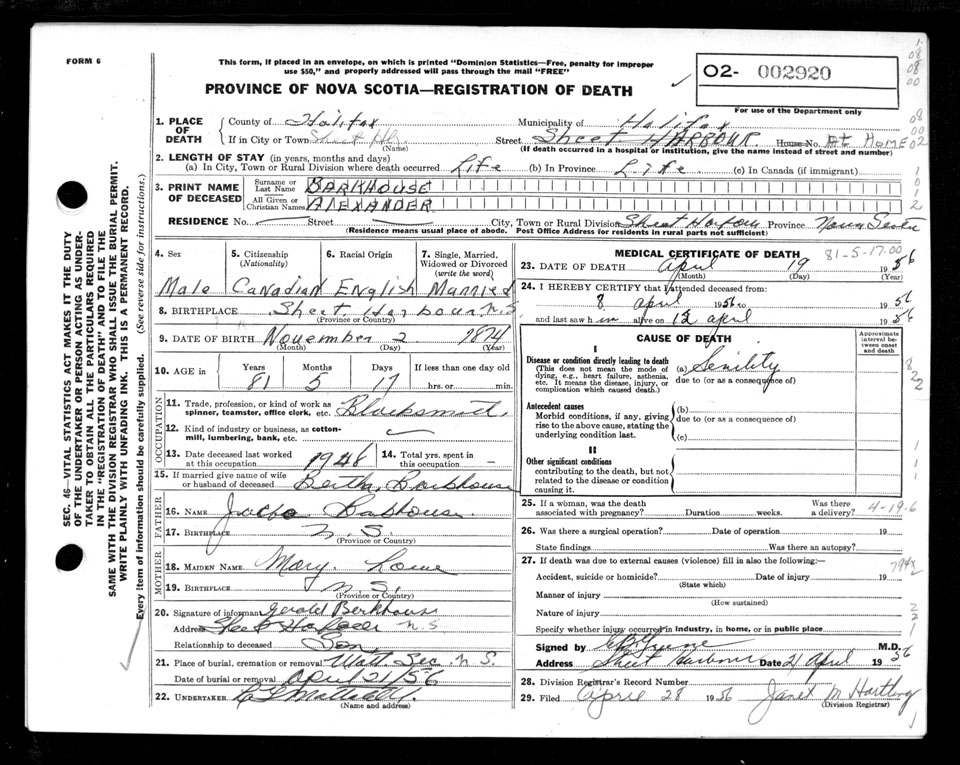 FORM 6
This form, if placed in an envelope, on which is printed "Dominion Statistics—Free, penalty for improper
use $50," and properly addressed will pass through the mail "FREE"
PROVINCE OF NOVA SCOTIA—REGISTRATION OF DEATH
O2- 002920
For use of the Department only
1. PLACE OF DEATH
County of Halifax Municipality of Halifax
If in City or Town Sheet Hbr Street Sheet HARBOUR House No. At HOME
(Name) (If death occurred in a hospital or institution, give the name instead of street and number)
2. LENGTH OF STAY (in years, months and days)
(a) In City, Town or Rural Division where death occurred Life (b) In Province Life (c) In Canada (if immigrant)
3. PRINT NAME OF DECEASED
Surname or Last Name BARKHOUSE
All Given or Christian Names ALEXANDER
RESIDENCE No. Street City, Town or Rural Division Sheet Harbour Province Nova Scotia
(Residence means usual place of abode. Post Office Address for residents in rural parts not sufficient)
4. Sex Male
5. Citizenship (Nationality) Canadian
6. Racial Origin English
7. Single, Married, Widowed or Divorced (write the word) Married
8. BIRTHPLACE Sheet Harbour N.S.
(Province or Country)
9. DATE OF BIRTH November 2 1874
(Month) (Day) (Year)
10. AGE in Years 81 Months 5 Days 17 If less than one day old hrs. or min.
OCCUPATION
11. Trade, profession, or kind of work as spinner, teamster, office clerk, etc. Blacksmith
12. Kind of industry or business, as cotton-mill, lumbering, bank, etc.
13. Date deceased last worked at this occupation 1948
14. Total yrs. spent in this occupation —
15. If married give name of wife or husband of deceased Bertha Barkhouse
FATHER
16. NAME
17. BIRTHPLACE N. S.
(Province or Country)
MOTHER
18. MAIDEN NAME Mary Lowe
19. BIRTHPLACE N. S.
(Province or Country)
20. Signature of informant Gerald Barkhouse
Address Sheet Harbour N.S
Relationship to deceased Son
21. Place of burial, cremation or removal Watt Sec. N S.
Date of burial or removal April 21/56
22. UNDERTAKER
(Name and address)
MEDICAL CERTIFICATE OF DEATH 81-5-17-00
23. DATE OF DEATH April 19 1956
(Month) (Day)
24. I HEREBY CERTIFY that I attended deceased from:
8 april 1956 to 1956
and last saw him alive on 12 april 1956
CAUSE OF DEATH
Approximate interval between onset and death
I
Disease or condition directly leading to death
(This does not mean the mode of dying, e.g., heart failure, asthenia, etc. It means the disease, injury, or complication which caused death.)
(a) Senility
due to (or as a consequence of)
Antecedent causes
Morbid conditions, if any, giving rise to the above cause, stating the underlying condition last.
(b)
due to (or as a consequence of)
(c)
II
Other significant conditions
contributing to the death, but not related to the disease or condition causing it.
25. If a woman, was the death associated with pregnancy? Duration weeks. Was there a delivery? 4-19-6
26. Was there a surgical operation? Date of operation 19
State findings Was there an autopsy?
27. If death was due to external causes (violence) fill in also the following:— 794X
Accident, suicide or homicide? Date of injury 19
(State which)
Manner of injury
(How sustained)
Nature of injury
Specify whether injury occurred in industry, in home, or in public place
Signed by M.D.
Address Sheet Harbour Date 21 April 1956
28. Division Registrar's Record Number
29. Filed April 28 1956 Janet M Hartling
(Division Registrar)
SEC. 46—VITAL STATISTICS ACT MAKES IT THE DUTY
OF THE UNDERTAKER OR PERSON ACTING AS UNDERTAKER TO OBTAIN ALL THE PARTICULARS REQUIRED
IN THE "REGISTRATION OF DEATH" AND TO FILE THE
SAME WITH THE DIVISION REGISTRAR WHO SHALL ISSUE THE BURIAL PERMIT.
WRITE PLAINLY WITH UNFADING INK. THIS IS A PERMANENT RECORD.
Every item of information should be carefully supplied. (See reverse side for instructions.)